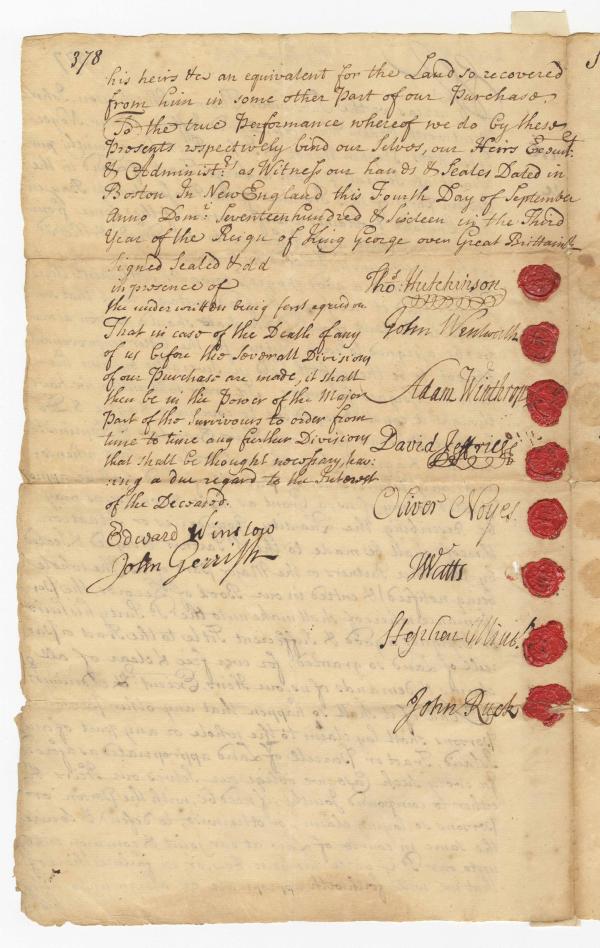 378
his heirs &c an equivalent for the Land so recovered
from him in some other Part of our Purchase.
To the true Performance whereof we do by these
Presents respectively bind our Selves, our Heirs Execut.rs
& Administ.rs as Witness our hands & Seales Dated in
Boston In New England this Fourth Day of September
Anno Dom.i Seventeenhundred & Sixteen in the Third
Year of the Reign of King George over Great Brittain &c
Signed Sealed & dd
in presence of
the underwritten being first agreed on
That in case of the Death of any
of us before the Severall Divisions
of our Purchase are made, it shall
then be in the Power of the Major
Part of the Survivours to order from
time to time any further Divisions
that shall be thought necessary, hav:
:ing a due regard to the Interest
of the Deceased.
Edward Winslow
John Gerrish
Tho.s Hutchinson
John Wentworth
Adam Winthrop
David Jeffries
Oliver Noyes.
J Watts
Stephen Minot
John Ruck